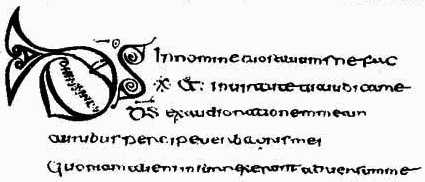 DS in nomine tuo salvum me fac
& in virtute tua iudica me
DS exaudi orationem meam
auribus percipe verba oris mei
Quoniam alieni insurrexerunt adversum me